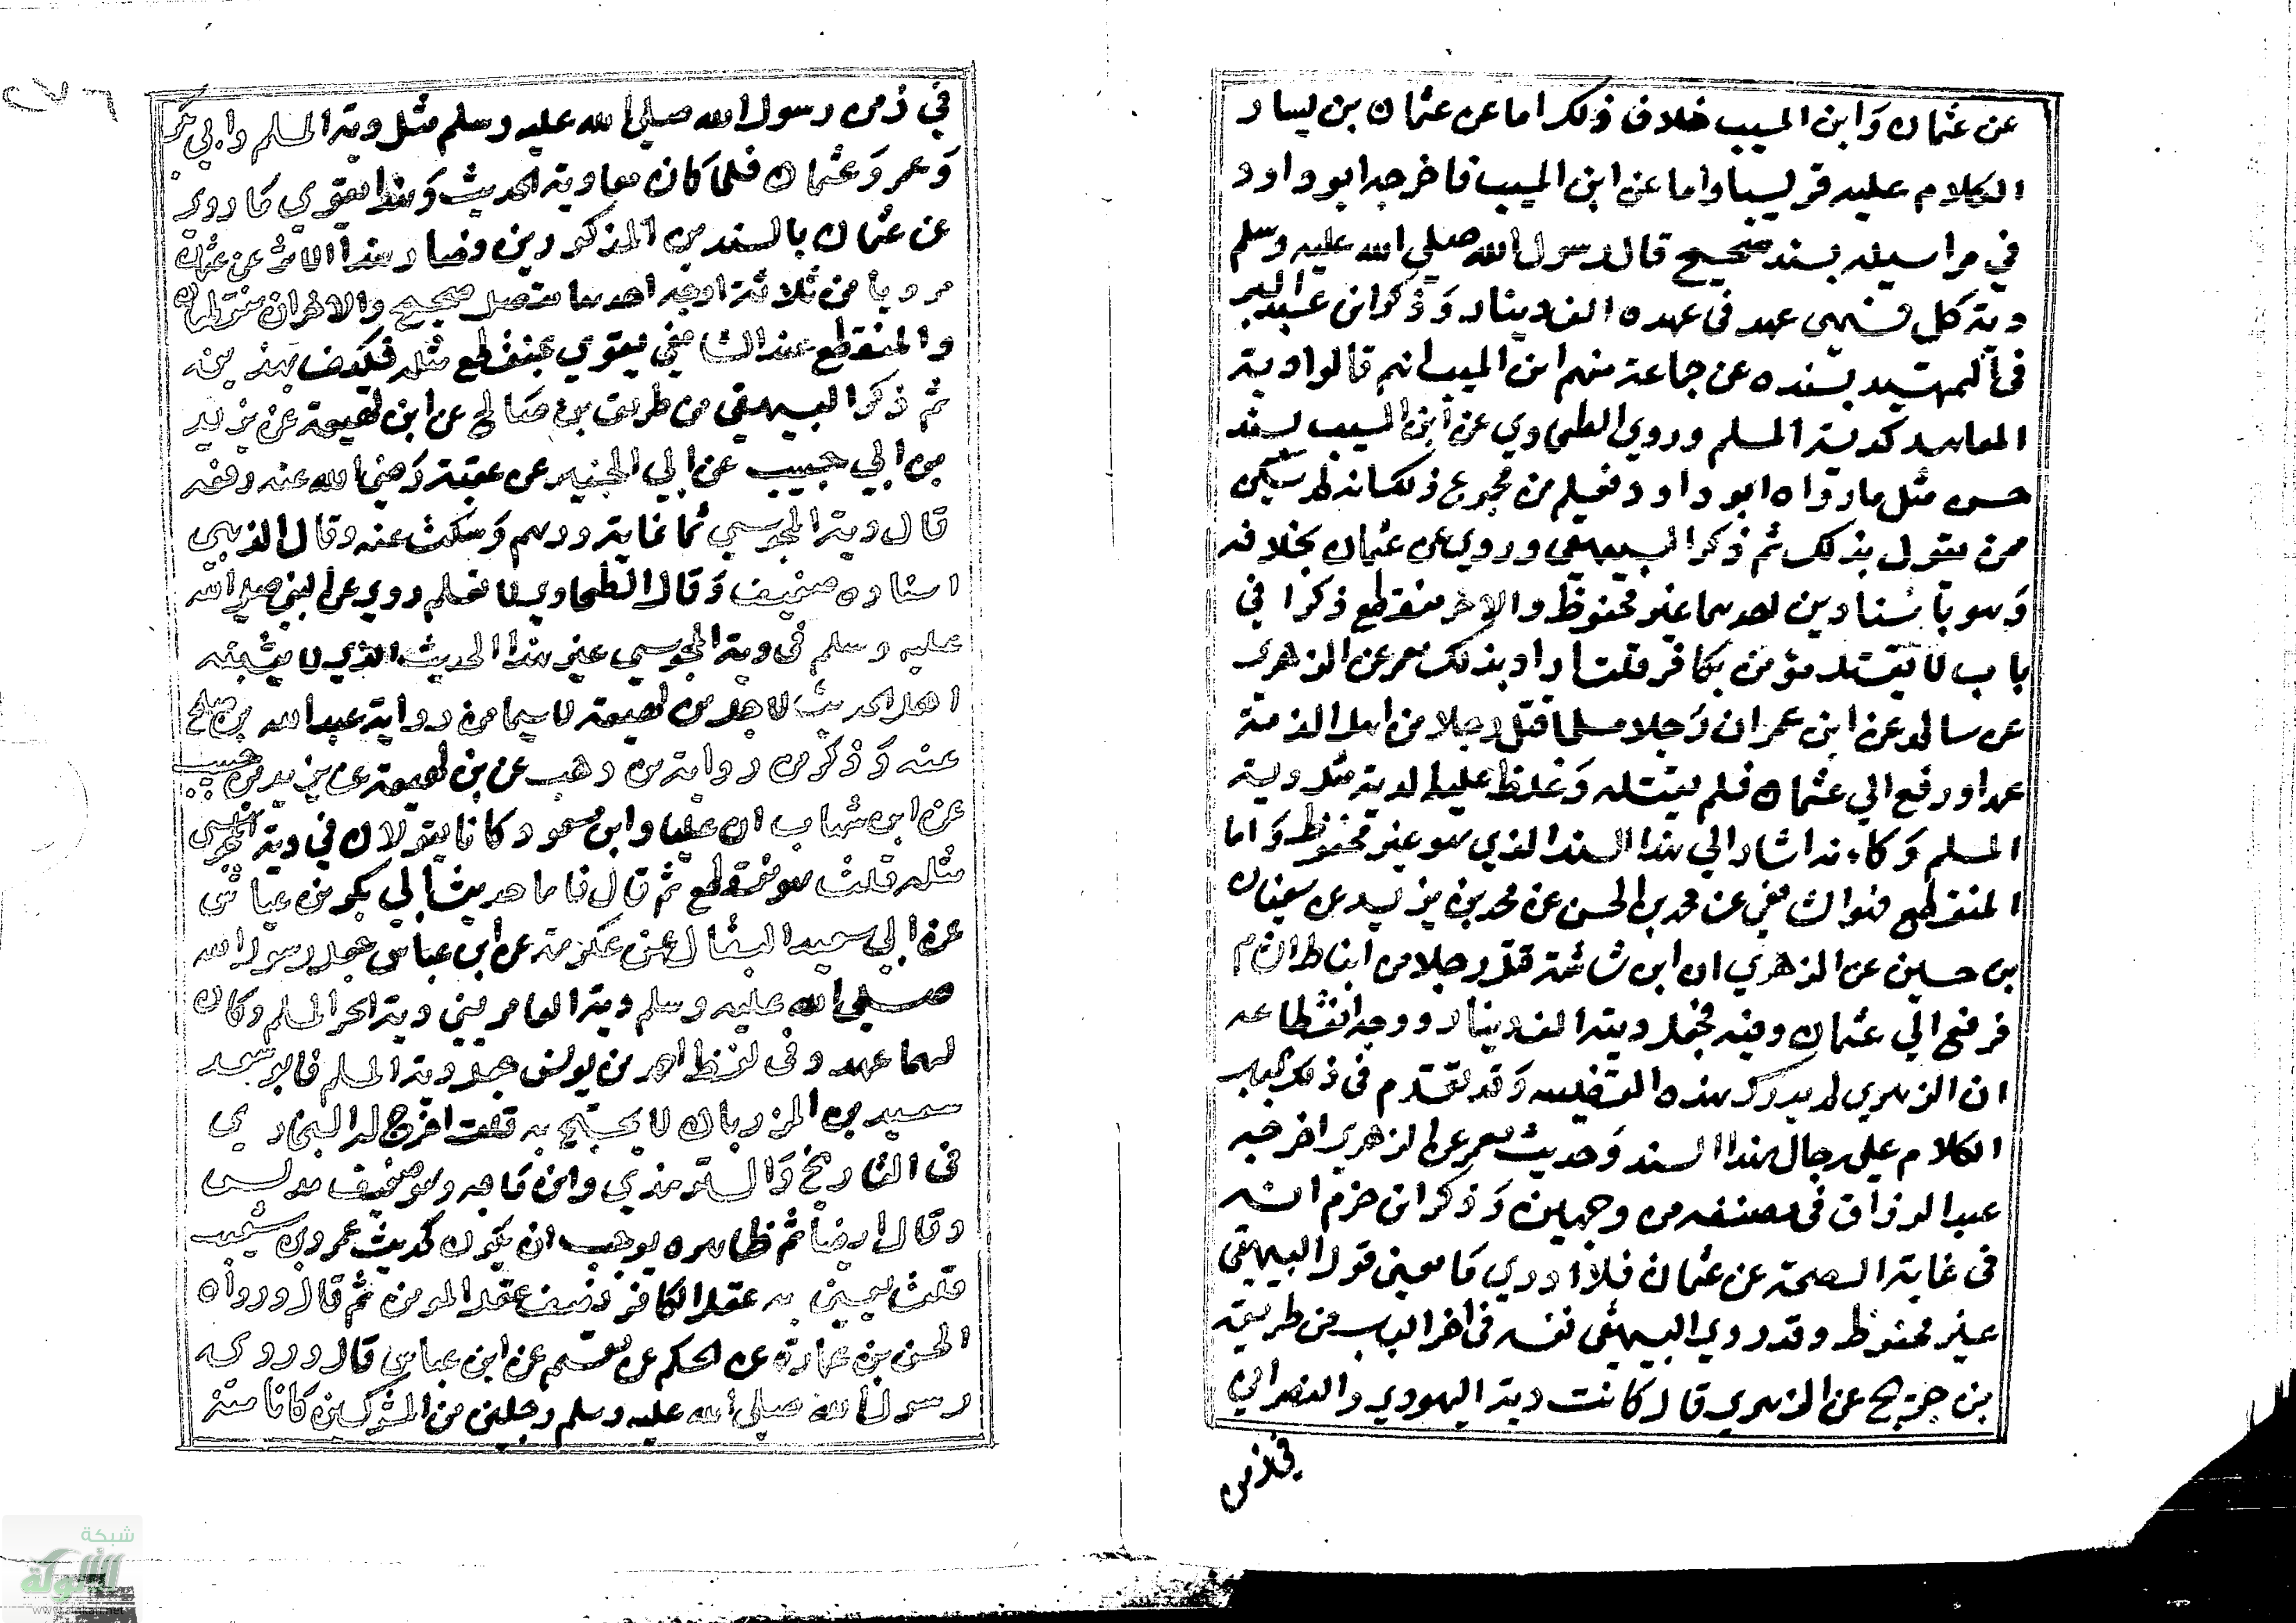 عن عثمان وابن المسيب خلاف ذلك اما عن عثمان بن يسار
الكلام عليه قريبا واما عن ابن المسيب فاخرجه ابو داود
في مراسيله بسند صحيح قال رسول الله صلى الله عليه وسلم
دية كل ذي عهد في عهده الف دينار وذكر ابن عبد البر
في التمهيد بسنده عن جماعة منهم ابن المسيب انهم قالوا دية
المعاهد كدية المسلم وروي الطحاوي عن ابن المسيب بسند
حسن مثل ما رواه ابو داود فعلم من مجموع ذلك انه لم يكن
ممن يقول بذلك ثم ذكر البيهقي وروي عن عثمان بخلافه
وهو باسنادين احدهما غير محفوظ والاخر منقطع ذكرا في
باب لا يقتل مؤمن بكافر قلت اراد بذلك معمر عن الزهري
عن سالم عن ابن عمر ان رجلا مسلما قتل رجلا من اهل الذمة
عمدا ورفع الي عثمان فلم يقتله وغلظ عليه الدية مثل دية
المسلم وكانه اشار الي هذا السند الذي هو غير محفوظ واما
المنقطع فهو الشافعي عن محمد بن الحسن عن محمد بن يزيد عن سفيان
بن حسين عن الزهري ان ابن شاشة قتل رجلا من انباط الشام
فرفع الي عثمان وفيه فجعل ديته الف دينار ووجه انقطاعه
ان الزهري لم يدرك هذه القضية وقد تقدم في ذلك
الكلام علي رجال هذا السند وحديث معمر عن الزهري اخرجه
عبد الرزاق في مصنفه من وجهين وذكر ابن حزم انه
في غاية الصحة عن عثمان فلا ادري ما معني قول البيهقي
غير محفوظ وقد روي البيهقي نفسه في اخر الباب من طريق
بن جريج عن الزهري قال كانت دية اليهودي والنصراني
في زمن
في زمن رسول الله صلي الله عليه وسلم مثل دية المسلم وابي بكر
وعمر وعثمان فلما كان معاوية الحديث وهذا يقوي ما روي
عن عثمان بالسندين المذكورين وصار هذا الاثر عن عثمان
مرويا من ثلاثة اوجه احدها متصل صحيح والاخران منقطعان
والمنقطع عند الشافعي يقوي بمنقطع مثله فكيف بهذين
ثم ذكر البيهقي من طريق بن صالح عن ابن لهيعة عن يزيد
بن ابي حبيب عن ابي الخير عن عقبة رضي الله عنه رفعه
قال دية المجوسي ثمانماية درهم وسكت عنه وقال الذهبي
اسناده ضعيف وقال الطحاوي لا نعلم روي عن النبي صلي الله
عليه وسلم في دية المجوسي غير هذا الحديث الذي لا يثبته
اهل الحديث لاجل بن لهيعة لا سيما من رواية عبد الله بن صالح
عنه وذكر من رواية بن وهب عن بن لهيعة عن يزيد بن حبيب
عن ابن شهاب ان عليا وابن مسعود كانا يقولان في دية المجوسي
مثله قلت هو منقطع ثم قال فاما حديث ابي بكر بن عياش
عن ابي سعيد البقال عن عكرمة عن ابن عباس جعل رسول الله
صلي الله عليه وسلم دية العامريين دية الحر المسلم وكان
لهما عهد وفي لفظ احمد بن يونس جعل دية المسلم فابو سعد
سعيد بن المرزبان لا يحتج به قلت اخرج له البخاري
في التاريخ والترمذي وابن ماجه وهو ضعيف مدلس
وقال ايضا ثم ظاهره يوجب ان يكون كحديث عمرو بن شعيب
قلت يعني به عقل الكافر نصف عقل المومن ثم قال ورواه
الحسن بن عمارة عن الحكم عن مقسم عن ابن عباس قال وروي
رسول الله صلي الله عليه وسلم رجلين من المشركين كانا منه
شبكة
الألوكة
www.alukah.net